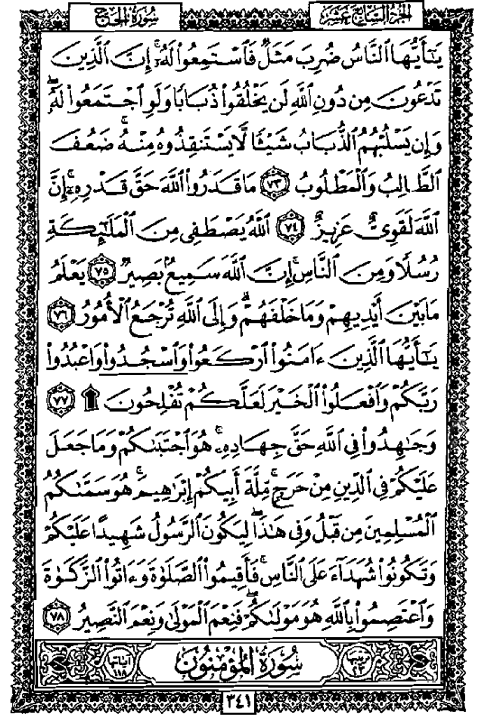 سُورَةُ الحَجِّ    الجُزءُ السَّابِعَ عَشَرَ
يَٰٓأَيُّهَا ٱلنَّاسُ ضُرِبَ مَثَلٌ فَٱسْتَمِعُوا۟ لَهُۥٓ ۚ إِنَّ ٱلَّذِينَ
تَدْعُونَ مِن دُونِ ٱللَّهِ لَن يَخْلُقُوا۟ ذُبَابًا وَلَوِ ٱجْتَمَعُوا۟ لَهُۥ ۖ
وَإِن يَسْلُبْهُمُ ٱلذُّبَابُ شَيْـًٔا لَّا يَسْتَنقِذُوهُ مِنْهُ ۚ ضَعُفَ
ٱلطَّالِبُ وَٱلْمَطْلُوبُ ٧٣ مَا قَدَرُوا۟ ٱللَّهَ حَقَّ قَدْرِهِۦٓ ۗ إِنَّ
ٱللَّهَ لَقَوِىٌّ عَزِيزٌ ٧٤ ٱللَّهُ يَصْطَفِى مِنَ ٱلْمَلَٰٓئِكَةِ
رُسُلًا وَمِنَ ٱلنَّاسِ ۚ إِنَّ ٱللَّهَ سَمِيعٌۢ بَصِيرٌ ٧٥ يَعْلَمُ
مَا بَيْنَ أَيْدِيهِمْ وَمَا خَلْفَهُمْ ۗ وَإِلَى ٱللَّهِ تُرْجَعُ ٱلْأُمُورُ ٧٦
يَٰٓأَيُّهَا ٱلَّذِينَ ءَامَنُوا۟ ٱرْكَعُوا۟ وَٱسْجُدُوا۟ وَٱعْبُدُوا۟
رَبَّكُمْ وَٱفْعَلُوا۟ ٱلْخَيْرَ لَعَلَّكُمْ تُفْلِحُونَ ۩ ٧٧
وَجَٰهِدُوا۟ فِى ٱللَّهِ حَقَّ جِهَادِهِۦ ۚ هُوَ ٱجْتَبَىٰكُمْ وَمَا جَعَلَ
عَلَيْكُمْ فِى ٱلدِّينِ مِنْ حَرَجٍ ۚ مِّلَّةَ أَبِيكُمْ إِبْرَٰهِيمَ ۚ هُوَ سَمَّىٰكُمُ
ٱلْمُسْلِمِينَ مِن قَبْلُ وَفِى هَٰذَا لِيَكُونَ ٱلرَّسُولُ شَهِيدًا عَلَيْكُمْ
وَتَكُونُوا۟ شُهَدَآءَ عَلَى ٱلنَّاسِ ۚ فَأَقِيمُوا۟ ٱلصَّلَوٰةَ وَءَاتُوا۟ ٱلزَّكَوٰةَ
وَٱعْتَصِمُوا۟ بِٱللَّهِ هُوَ مَوْلَىٰكُمْ ۖ فَنِعْمَ ٱلْمَوْلَىٰ وَنِعْمَ ٱلنَّصِيرُ ٧٨
ترتيبها ٢٣    سُورَةُ المُؤْمِنُونَ    آياتها ١١٨
٣٤١